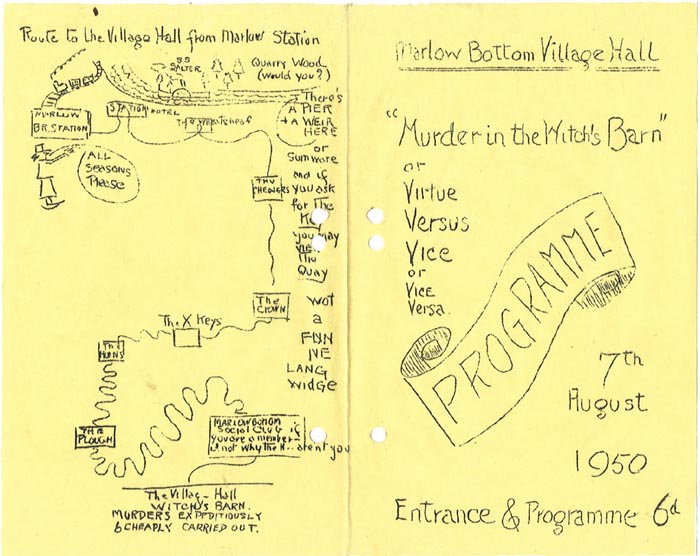 Route to the Village Hall from Marlow Station
SS
SALTER
Quarry Wood
(would you?)
MARLOW
BR. STATION
STATION HOTEL
The Wheatsheaf
There's
A PIER
+ A WEIR
HERE
or
Sumware
and if
you ask
for The
Key
you may
View
The
Quay
ALL
SEASONS
Please
THE
CHEQUERS
THE
CROWN
Wot
a
FUN
NE
LANG
WIDGE
The X Keys
THE
HORNS
THE
PLOUGH
MARLOW BOTTOM
Social Club if
you are a member
if not why the H... arent you
The Villag- Hall
WITCHY'S BARN.
MURDERS EXPEDITIOUSLY
& CHEAPLY CARRIED OUT.
Marlow Bottom Village Hall
"Murder in the Witch's Barn"
or
Virtue
Versus
Vice
or
Vice
Versa.
PROGRAMME
7th
August
1950
Entrance & Programme 6d